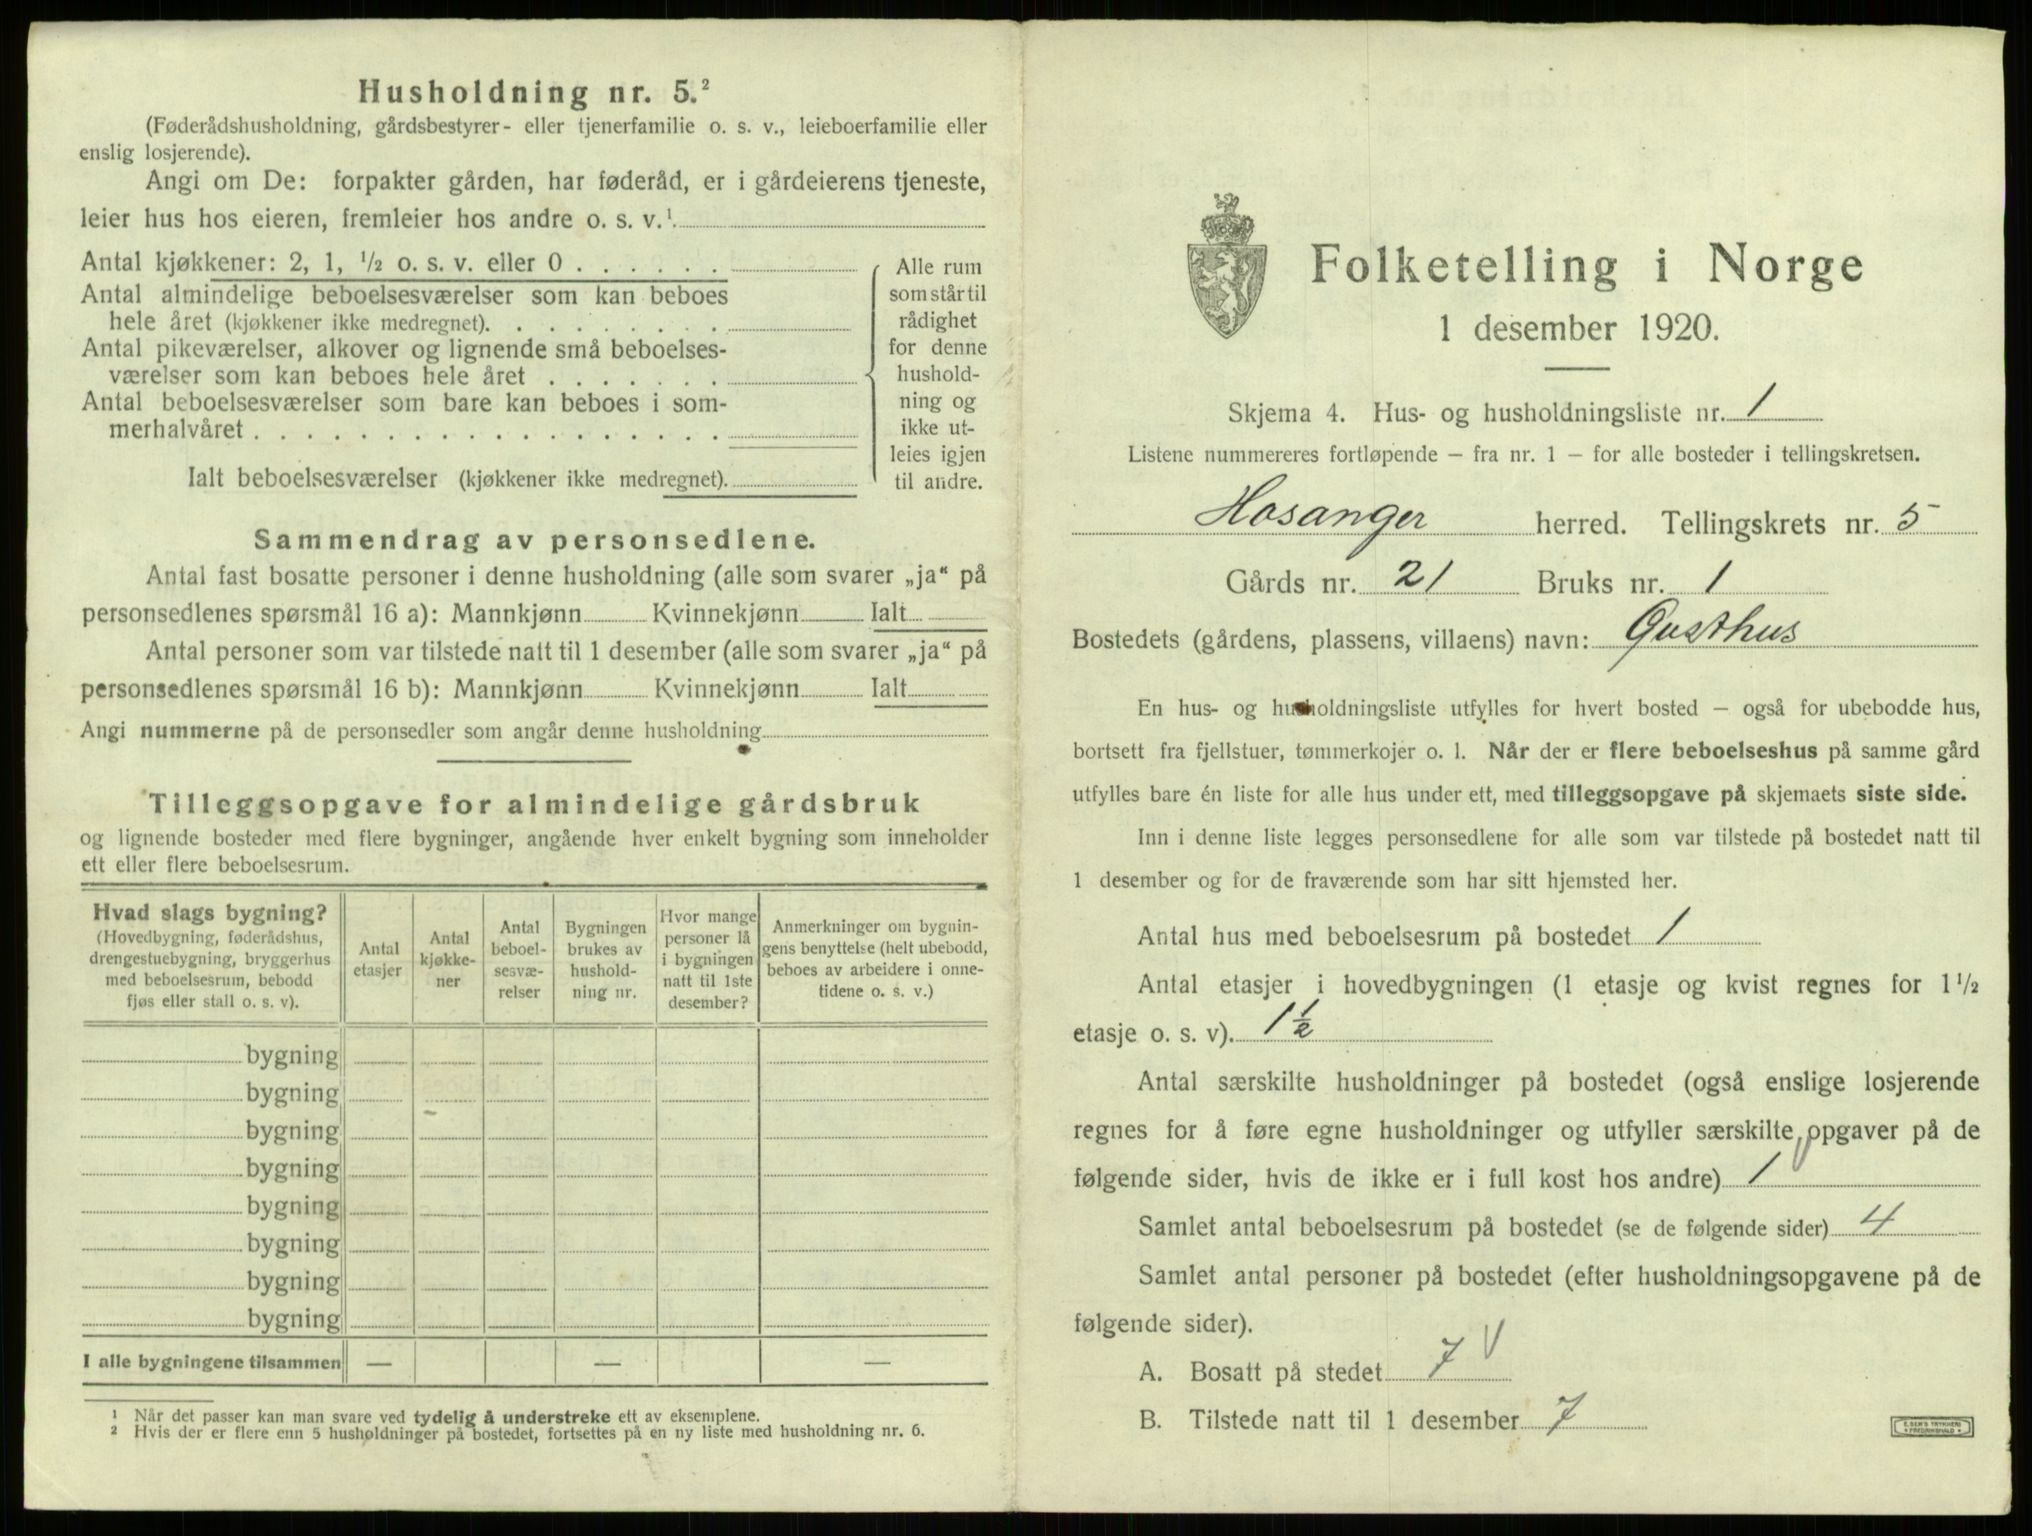 Husholdning nr. 5.²
(Føderådshusholdning, gårdsbestyrer- eller tjenerfamilie o. s. v., leieboerfamilie eller
enslig losjerende).
Angi om De: forpakter gården, har føderåd, er i gårdeierens tjeneste,
leier hus hos eieren, fremleier hos andre o. s. v.¹
Antal kjøkkener: 2, 1, ½ o. s. v. eller 0 . . . . . .
Antal almindelige beboelsesværelser som kan beboes
hele året (kjøkkener ikke medregnet). . . . . . . . .
Antal pikeværelser, alkover og lignende små beboelses-
værelser som kan beboes hele året . . . . . . .
Antal beboelsesværelser som bare kan beboes i som-
merhalvåret . . . . . . . . . . . . . . . . . .
Ialt beboelsesværelser (kjøkkener ikke medregnet).
Alle rum
som står til
rådighet
for denne
hushold-
ning og
ikke ut-
leies igjen
til andre.
Sammendrag av personsedlene.
Antal fast bosatte personer i denne husholdning (alle som svarer „ja“ på
personsedlenes spørsmål 16 a): Mannkjønn Kvinnekjønn Ialt
Antal personer som var tilstede natt til 1 desember (alle som svarer „ja“ på
personsedlenes spørsmål 16 b): Mannkjønn Kvinnekjønn Ialt
Angi nummerne på de personsedler som angår denne husholdning
Tilleggsopgave for almindelige gårdsbruk
og lignende bosteder med flere bygninger, angående hver enkelt bygning som inneholder
ett eller flere beboelsesrum.
Hvad slags bygning?
(Hovedbygning, føderådshus,
drengestuebygning, bryggerhus
med beboelsesrum, bebodd
fjøs eller stall o. s. v).
Antal
etasjer
Antal
kjøkke-
ner
Antal
beboel-
sesvæ-
relser
Bygningen
brukes av
hushold-
ning nr.
Hvor mange
personer lå
i bygningen
natt til 1ste
desember?
Anmerkninger om bygnin-
gens benyttelse (helt ubebodd,
beboes av arbeidere i onne-
tidene o. s. v.)
bygning
bygning
bygning
bygning
bygning
bygning
bygning
bygning
I alle bygningene tilsammen — — —
¹ Når det passer kan man svare ved tydelig å understreke ett av eksemplene.
² Hvis der er flere enn 5 husholdninger på bostedet, fortsettes på en ny liste med husholdning nr. 6.
Folketelling i Norge
1 desember 1920.
Skjema 4. Hus- og husholdningsliste nr. 1
Listene nummereres fortløpende – fra nr. 1 – for alle bosteder i tellingskretsen.
Hosanger herred. Tellingskrets nr. 5
Gårds nr. 21 Bruks nr. 1
Bostedets (gårdens, plassens, villaens) navn:
En hus- og husholdningsliste utfylles for hvert bosted – også for ubebodde hus,
bortsett fra fjellstuer, tømmerkojer o. l. Når der er flere beboelseshus på samme gård
utfylles bare én liste for alle hus under ett, med tilleggsopgave på skjemaets siste side.
Inn i denne liste legges personsedlene for alle som var tilstede på bostedet natt til
1 desember og for de fraværende som har sitt hjemsted her.
Antal hus med beboelsesrum på bostedet 1
Antal etasjer i hovedbygningen (1 etasje og kvist regnes for 1½
etasje o. s. v). 1½
Antal særskilte husholdninger på bostedet (også enslige losjerende
regnes for å føre egne husholdninger og utfyller særskilte opgaver på de
følgende sider, hvis de ikke er i full kost hos andre) 1
Samlet antal beboelsesrum på bostedet (se de følgende sider) 4
Samlet antal personer på bostedet (efter husholdningsopgavene på de
følgende sider).
A. Bosatt på stedet 7
B. Tilstede natt til 1 desember 7